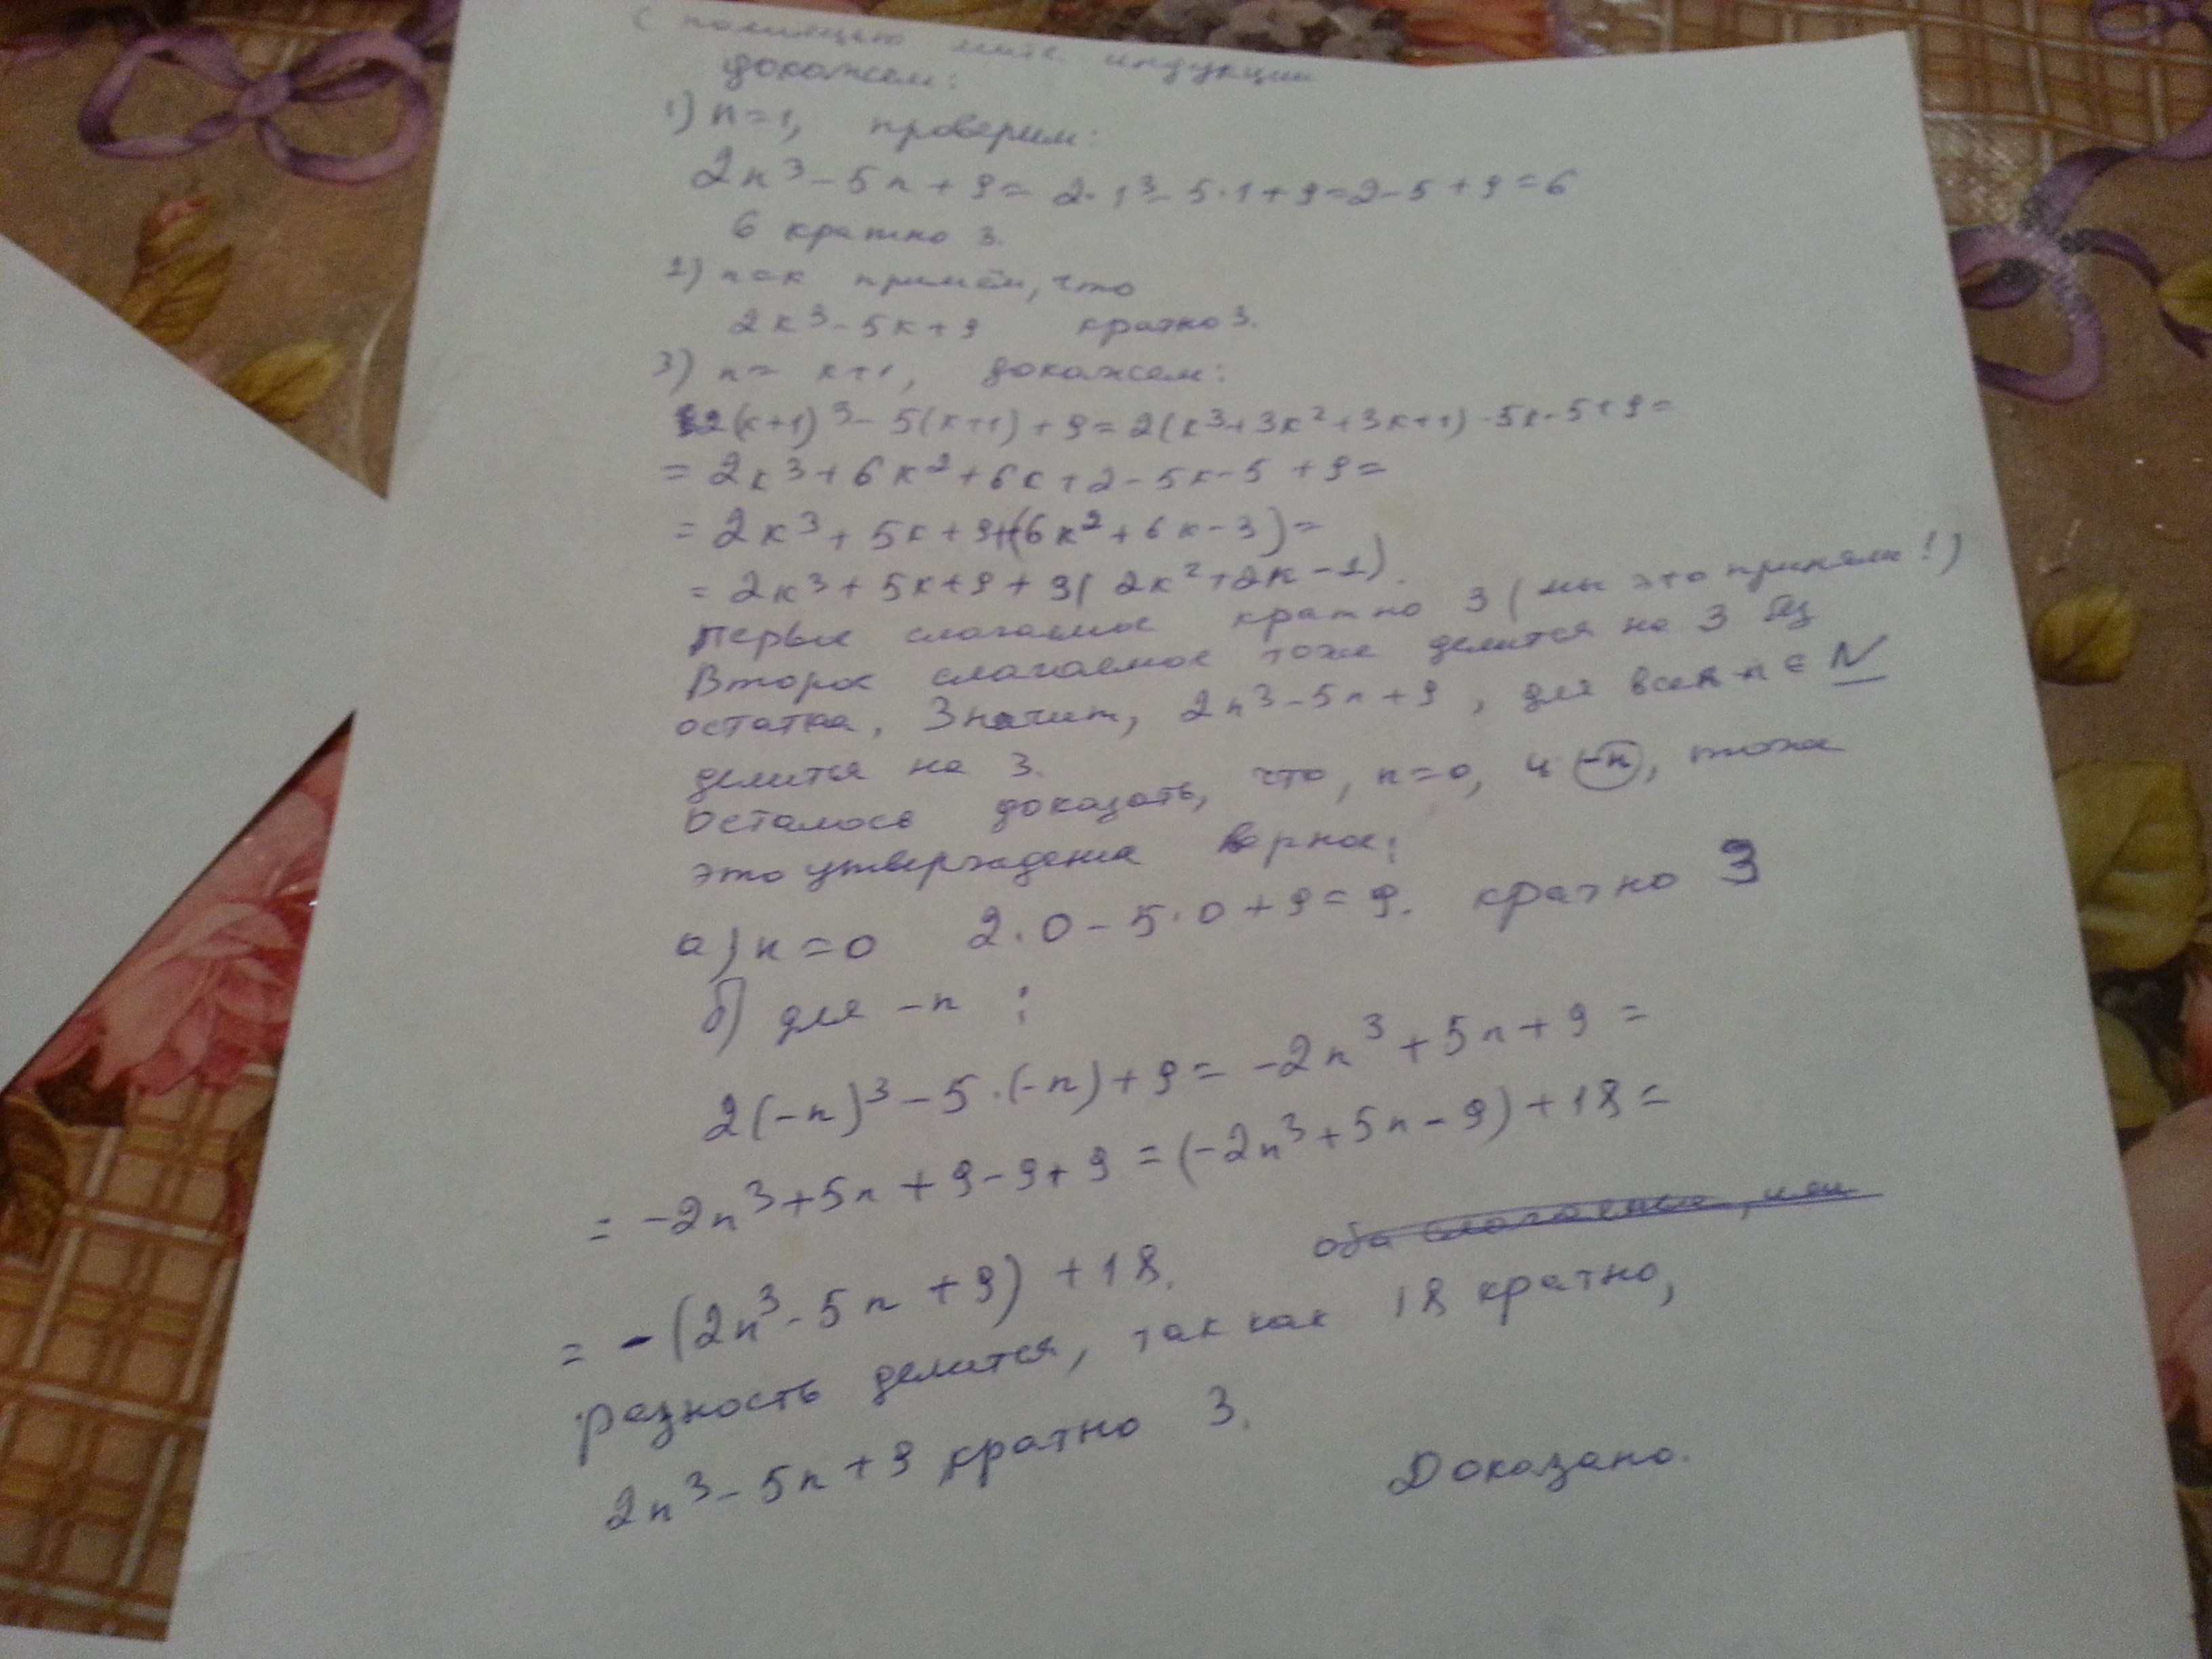 с помощью мате. индукции
докажем:
1) n=1, проверим:
2n³-5n+9= 2·1³-5·1+9=2-5+9=6
6 кратно 3.
2) n=к примем, что
2к³-5к+9 кратно 3.
3) n= к+1, докажем:
2(к+1)³-5(к+1)+9=2(к³+3к²+3к+1)-5к-5+9=
=2к³+6к²+6к+2-5к-5+9=
=2к³+5к+9+(6к²+6к-3)=
=2к³+5к+9+3(2к²+2к-1).
Первое слагаемое кратно 3 (мы это приняли!)
Второе слагаемое тоже делится на 3 без
остатка. Значит, 2n³-5n+9, для всех n ∈ N
делится на 3.
Осталось доказать, что, n=0, и -n, тоже
это утверждение верное:
а) n=0 2·0-5·0+9=9. кратно 3
б) для -n :
2(-n)³-5·(-n)+9= -2n³+5n+9=
= -2n³+5n+9-9+9=(-2n³+5n-9)+18=
оба слагаемые, или
= -(2n³-5n+9)+18.
разность делится, так как 18 кратно,
2n³-5n+9 кратно 3.
Доказано.